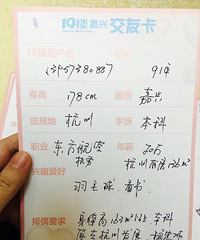 19楼 嘉兴 交友卡
19楼用户名
13957380887 91年
身高 178cm 籍贯 嘉兴
定居地 杭州 学历 本科
职业 东方航空 年薪 20万
杭州首房136m²
兴趣爱好
羽毛球、看书
择偶要求
身材高163m以上 本科